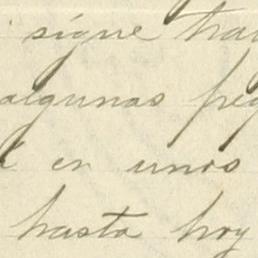 sigue
algunas
en unos
hasta hoy